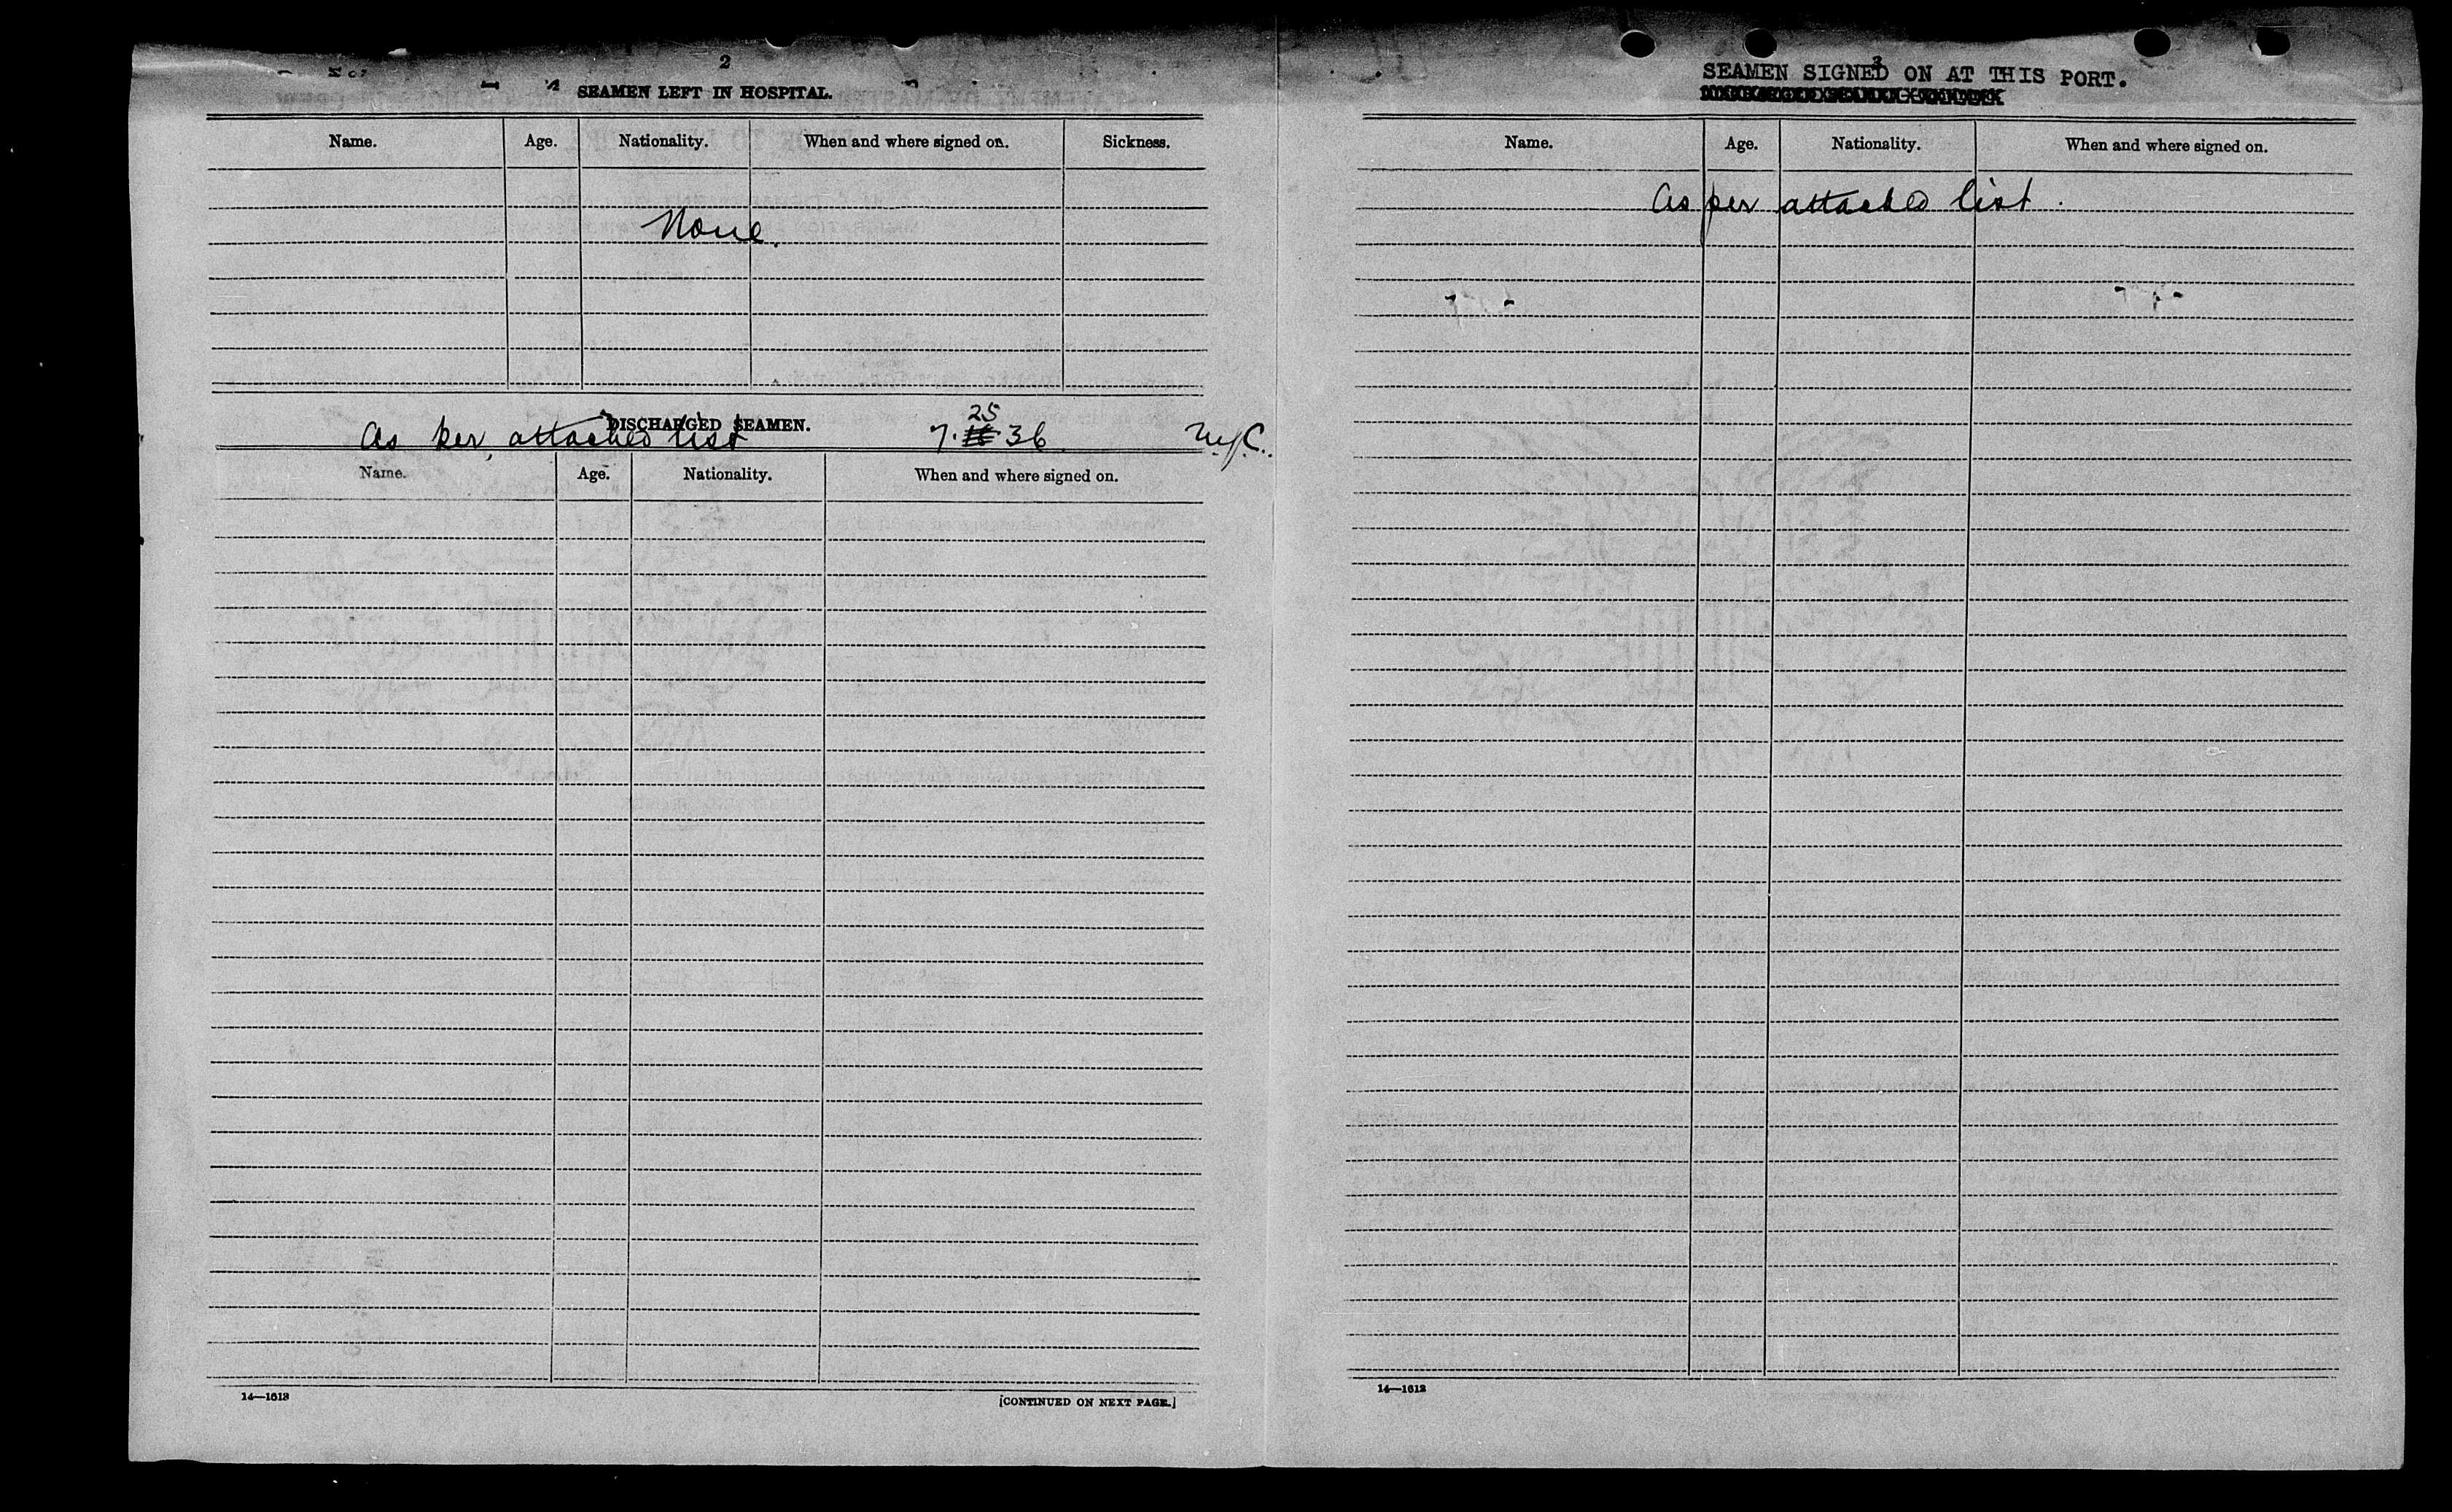 2
SEAMEN LEFT IN HOSPITAL.
Name. Age. Nationality. When and where signed on. Sickness.
None.
DISCHARGED SEAMEN.
As per attached list 7. 25 36 N.Y.C.
Name. Age. Nationality. When and where signed on.
14—1613
[CONTINUED ON NEXT PAGE.]
3
SEAMEN SIGNED ON AT THIS PORT.
Name. Age. Nationality. When and where signed on.
As per attached list.
14—1613